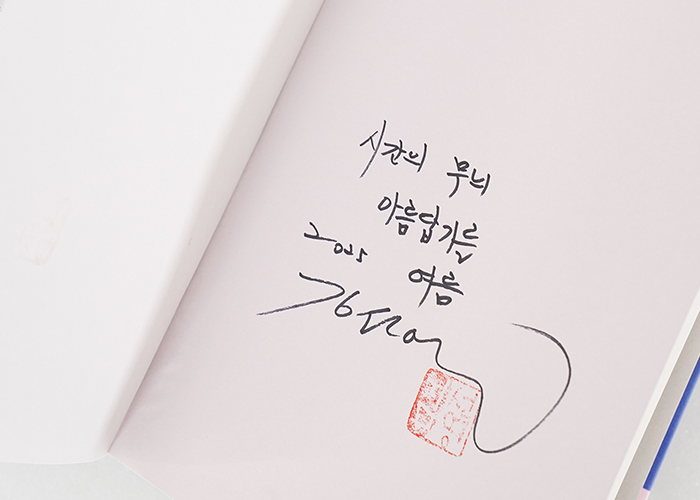 시간의 무늬
아름답기를
2025 여름